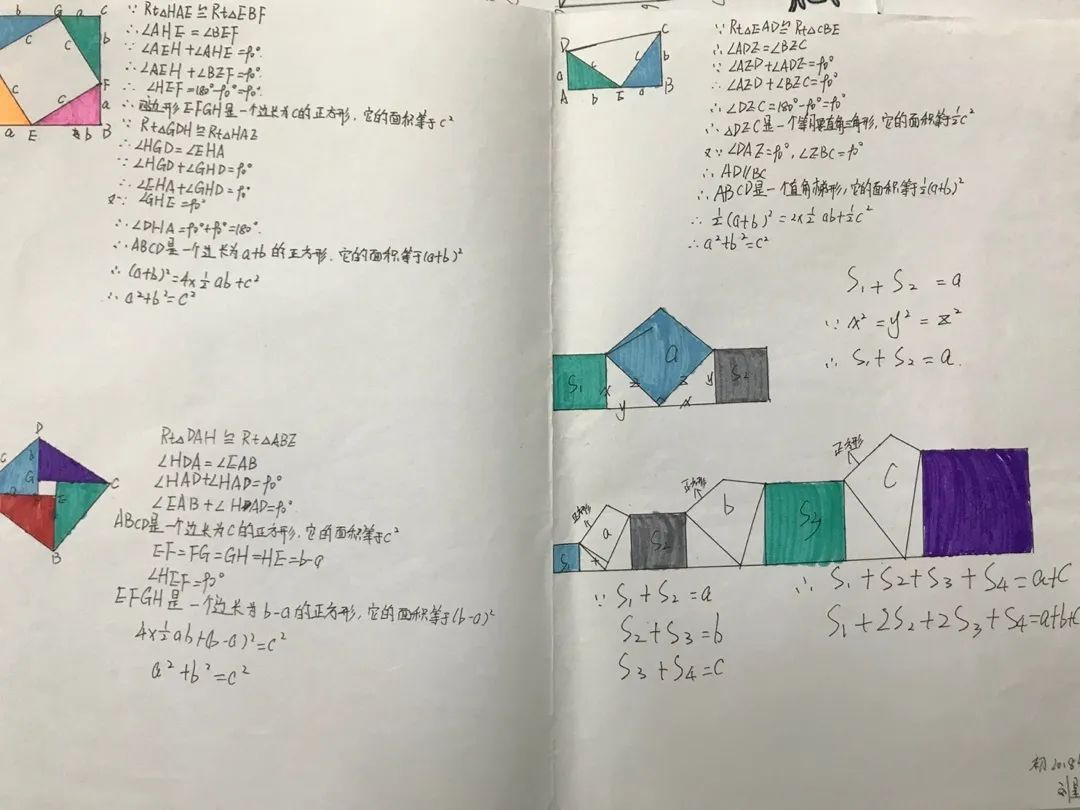 ∵ Rt△HAE ≌ Rt△EBF
∴ ∠AHE = ∠BEF
∵ ∠AEH + ∠AHE = 90°
∴ ∠AEH + ∠BEF = 90°.
∴ ∠HEF = 180° - 90° = 90°.
∴ 四边形 EFGH 是一个边长为c的正方形, 它的面积等于 c²
∵ Rt△GDH ≌ Rt△HAE
∴ ∠HGD = ∠EHA
∵ ∠HGD + ∠GHD = 90°
∴ ∠EHA + ∠GHD = 90°
又∵ ∠GHE = 90°
∴ ∠DHA = 90° + 90° = 180°.
∴ ABCD是一个边长为 a+b 的正方形. 它的面积等于(a+b)²
∴ (a+b)² = 4×½ab + c²
∴ a² + b² = c²
b G a C
c c b
F
c c a
a E b B
Rt△DAH ≌ Rt△ABE
∠HDA = ∠EAB
∠HAD + ∠HAD = 90°
∠EAB + ∠HAD = 90°.
ABCD是一个边长为C的正方形, 它的面积等于 c²
EF = FG = GH = HE = b-a
∠HEF = 90°
EFGH 是一个边长为 b-a 的正方形, 它的面积等于(b-a)²
4×½ab + (b-a)² = c²
a² + b² = c²
D
c b
G C
E
B
∵ Rt△EAD ≌ Rt△CBE
∴ ∠ADE = ∠BEC
∵ ∠AED + ∠ADE = 90°
∴ ∠AED + ∠BEC = 90°
∴ ∠DEC = 180° - 90° = 90°
∴ △DEC 是一个等腰直角三角形, 它的面积等于½c²
又∵ ∠DAE = 90°, ∠EBC = 90°
∴ AD∥BC
∴ ABCD是一个直角梯形, 它的面积等于½(a+b)²
∴ ½(a+b)² = 2×½ab + ½c²
∴ a² + b² = c²
D C
a c c b
A b E a B
S₁ + S₂ = a
∵ x² = y² = z²
∴ S₁ + S₂ = a.
a
S₁ x z z y S₂
y x
正方形 正方形 正方形
S₁ a S₂ b S₃ C
∵ S₁ + S₂ = a
S₂ + S₃ = b
S₃ + S₄ = c
∴ S₁ + S₂ + S₃ + S₄ = a+c
S₁ + 2S₂ + 2S₃ + S₄ = a+b+c
初2018